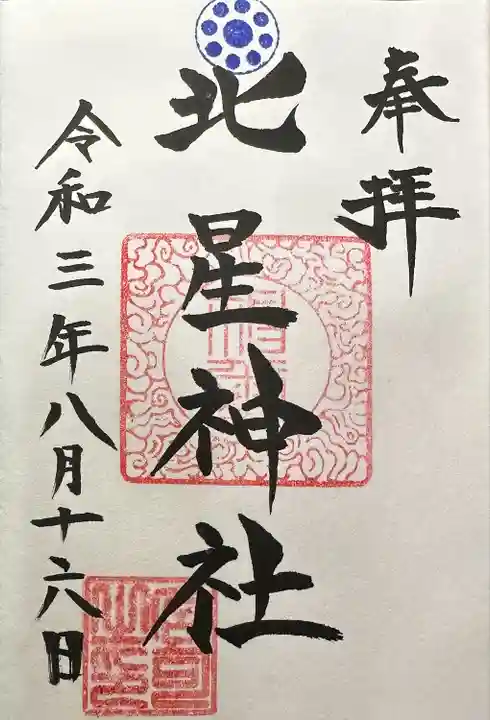 奉拝
北星神社
令和三年八月十六日